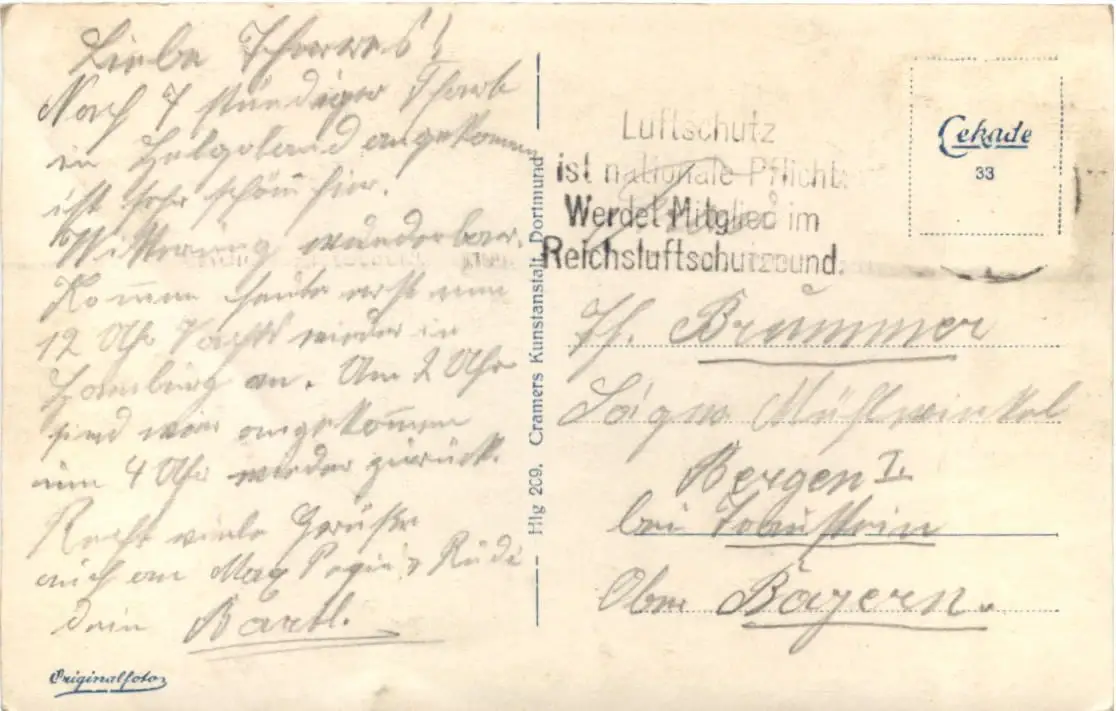 Liebe
Nach 7 stündiger Fahrt
in Helgoland angekommen
ist sehr schön hier.
Witterung wunderbar.
Kommen heute erst um
12 Uhr Nachts wieder in
Hamburg an. Um 2 Uhr
sind wir angekommen
um 4 Uhr wieder zurück.
Recht viele Grüße
auch an Max & Rudi
dein Bartl.
Originalfoto
Hlg 209. Cramers Kunstanstalt, Dortmund
Cekade
33
Luftschutz
ist nationale Pflicht.
Werdet Mitglied im
Reichsluftschutzbund.
Brummer
Säge Mühlwinkel
Bergen I.
bei Traunstein
Ober Bayern.